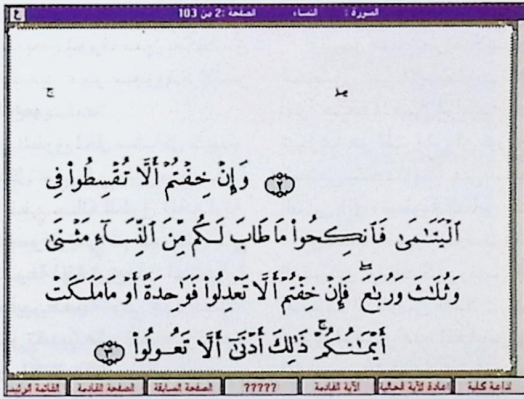 السورة : النساء الصفحة :2 من 103
ج صد
٢ وَإِنْ خِفْتُمْ أَلَّا تُقْسِطُوا۟ فِى
ٱلْيَتَٰمَىٰ فَٱنكِحُوا۟ مَا طَابَ لَكُم مِّنَ ٱلنِّسَآءِ مَثْنَىٰ
وَثُلَٰثَ وَرُبَٰعَ ۖ فَإِنْ خِفْتُمْ أَلَّا تَعْدِلُوا۟ فَوَٰحِدَةً أَوْ مَا مَلَكَتْ
أَيْمَٰنُكُمْ ۚ ذَٰلِكَ أَدْنَىٰٓ أَلَّا تَعُولُوا۟ ٣
اعادة الآية الحالية الآية القادمة ????? الصفحة السابقة الصفحة القادمة القائمة الرئيس